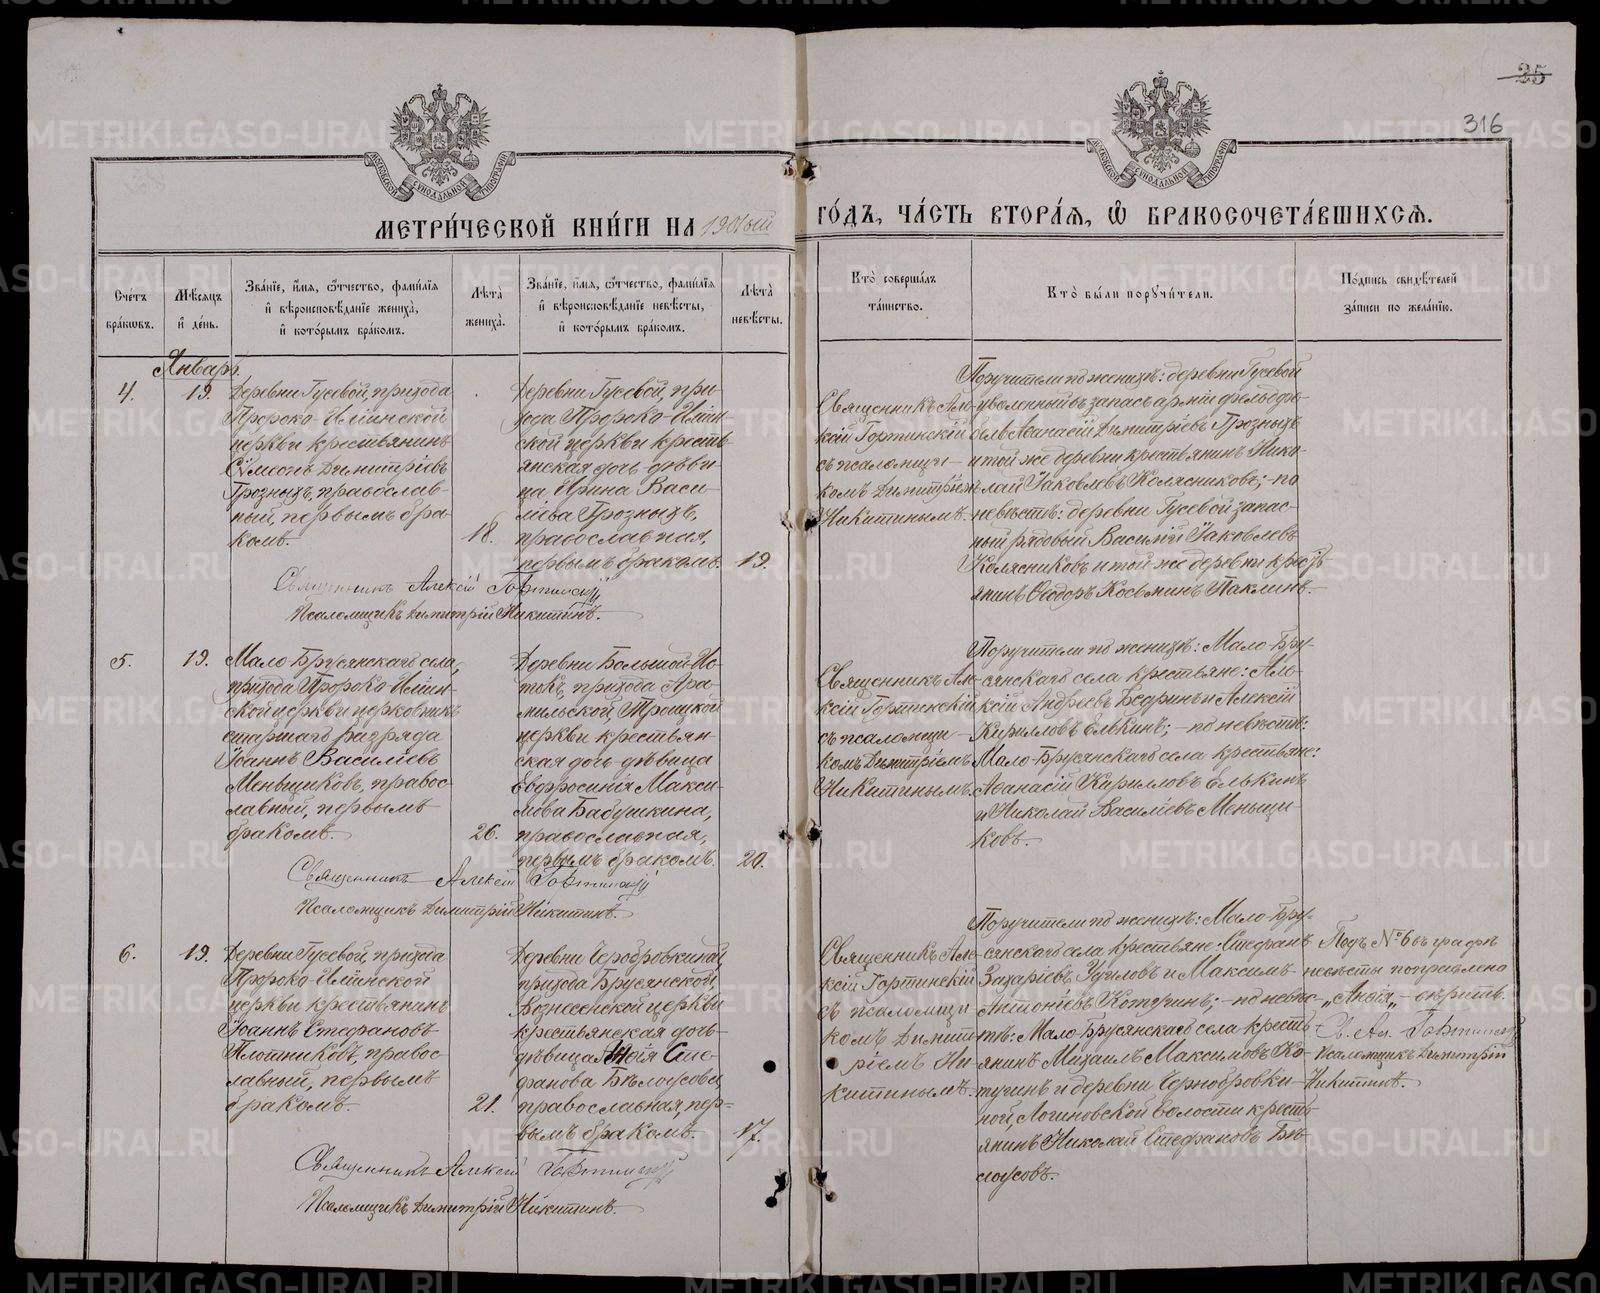 25
316
МЕТРИ́ЧЕСКОЙ КНИ́ГИ НА 1901ый ГО́ДЪ, ЧА́СТЬ ВТОРА́Ѧ, Ѽ БРАКОСОЧЕТА́ВШИХСѦ.
Сче́тъ бра́кωвъ.
Мѣ́сѧцъ и҆ де́нь.
Зва́нїе, и҆́мѧ, ѻ҆́тчество, фами́лїѧ и҆ вѣроисповѣ́данїе жениха̀, и҆ кото́рымъ бра́комъ.
Лѣ́та̀ жениха̀.
Зва́нїе, и҆́мѧ, ѻ҆́тчество, фами́лїѧ и҆ вѣроисповѣ́данїе невѣ́сты, и҆ кото́рымъ бра́комъ.
Лѣ́та̀ невѣ́сты.
Кто̀ соверша́лъ та́инство.
Кто̀ бы́ли порꙋчи́тели.
По́дпись свидѣ́телей за́писи по жела́нїю.
Январь
4.
19.
Деревни Гусевой, прихода
Пророко-Илiинской
церкви крестьянинъ
Сѵмеонъ Димитрiевъ
Грозныхъ, православ-
ный, первымъ бра-
комъ.
18.
Деревни Гусевой, при-
хода Пророко-Илiин-
ской церкви кресть-
янская дочь дѣви-
ца Ирина Васи-
лiева Грозныхъ,
православная,
первымъ бракомъ.
19.
Священникъ Але-
ксiй Гортинскiй
съ псаломщи-
комъ Димитрiемъ
Никитинымъ.
Поручители по женихѣ: деревни Гусевой
уволенный въ запасъ армiи фельдфе-
бель Аѳанасiй Димитрiевъ Грозныхъ
и той же деревни крестьянинъ Нико-
лай Iаковлевъ Колясниковъ; - по
невѣстѣ: деревни Гусевой запас-
ный рядовый Василiй Iаковлевъ
Колясниковъ и той же деревни кресть-
янинъ Ѳеодоръ Косьминъ Паклинъ.
Священникъ Алексiй Гортинскiй
Псаломщикъ Димитрiй Никитинъ.
5.
19.
Мало-Брусянскаго села,
прихода Пророко-Илiин-
ской церкви церковникъ
старшаго разряда
Iоаннъ Василiевъ
Меньщиковъ, правос-
лавный, первымъ
бракомъ.
26.
Деревни Большой-Ис-
токъ, прихода Ара-
мильской Троицкой
церкви крестьян-
ская дочь дѣвица
Евфросинiя Макси-
мова Бабушкина,
православная,
первымъ бракомъ.
20.
Священникъ Але-
ксiй Гортинскiй
съ псаломщи-
комъ Димитрiемъ
Никитинымъ.
Поручители по женихѣ: Мало-Бру-
сянскаго села крестьяне: Але-
ксiй Андреевъ Бедринъ и Алексiй
Кирилловъ Елькинъ; - по невѣстѣ:
Мало-Брусянскаго села крестьяне:
Аѳанасiй Кирилловъ Елькинъ
и Николай Василiевъ Меньщи-
ковъ.
Священникъ Алексiй Гортинскiй
Псаломщикъ Димитрiй Никитинъ.
6.
19.
Деревни Гусевой, прихода
Пророко-Илiинской
церкви крестьянинъ
Iоаннъ Стефановъ
Плотниковъ, правос-
лавный, первымъ
бракомъ.
21.
Деревни Чернобровкиной,
прихода Брусянской
Вознесенской церкви
крестьянская дочь
дѣвица Сте-
фанова Бѣлоусова,
православная, пер-
вымъ бракомъ.
17.
Священникъ Але-
ксiй Гортинскiй
съ псаломщи-
комъ Димит-
рiемъ Ни-
китинымъ.
Поручители по женихѣ: Мало-Бру-
сянскаго села крестьяне: Стефанъ
Захарiевъ и Максимъ
Антонiевъ Котугинъ; - по невѣс-
тѣ: Мало-Брусянскаго села кресть-
янинъ Михаилъ Максимовъ Ко-
тугинъ и деревни Чернобровки-
ной, Логиновской волости кресть-
янинъ Николай Стефановъ Бѣ-
лоусовъ.
Подъ №6 въ графѣ
невѣсты поправлено
- вѣрить.
Св. Ал. Гортинскiй
Псаломщикъ Димитрiй
Никитинъ.
Священникъ Алексiй Гортинскiй
Псаломщикъ Димитрiй Никитинъ.
METRIKI.GASO-URAL.RU